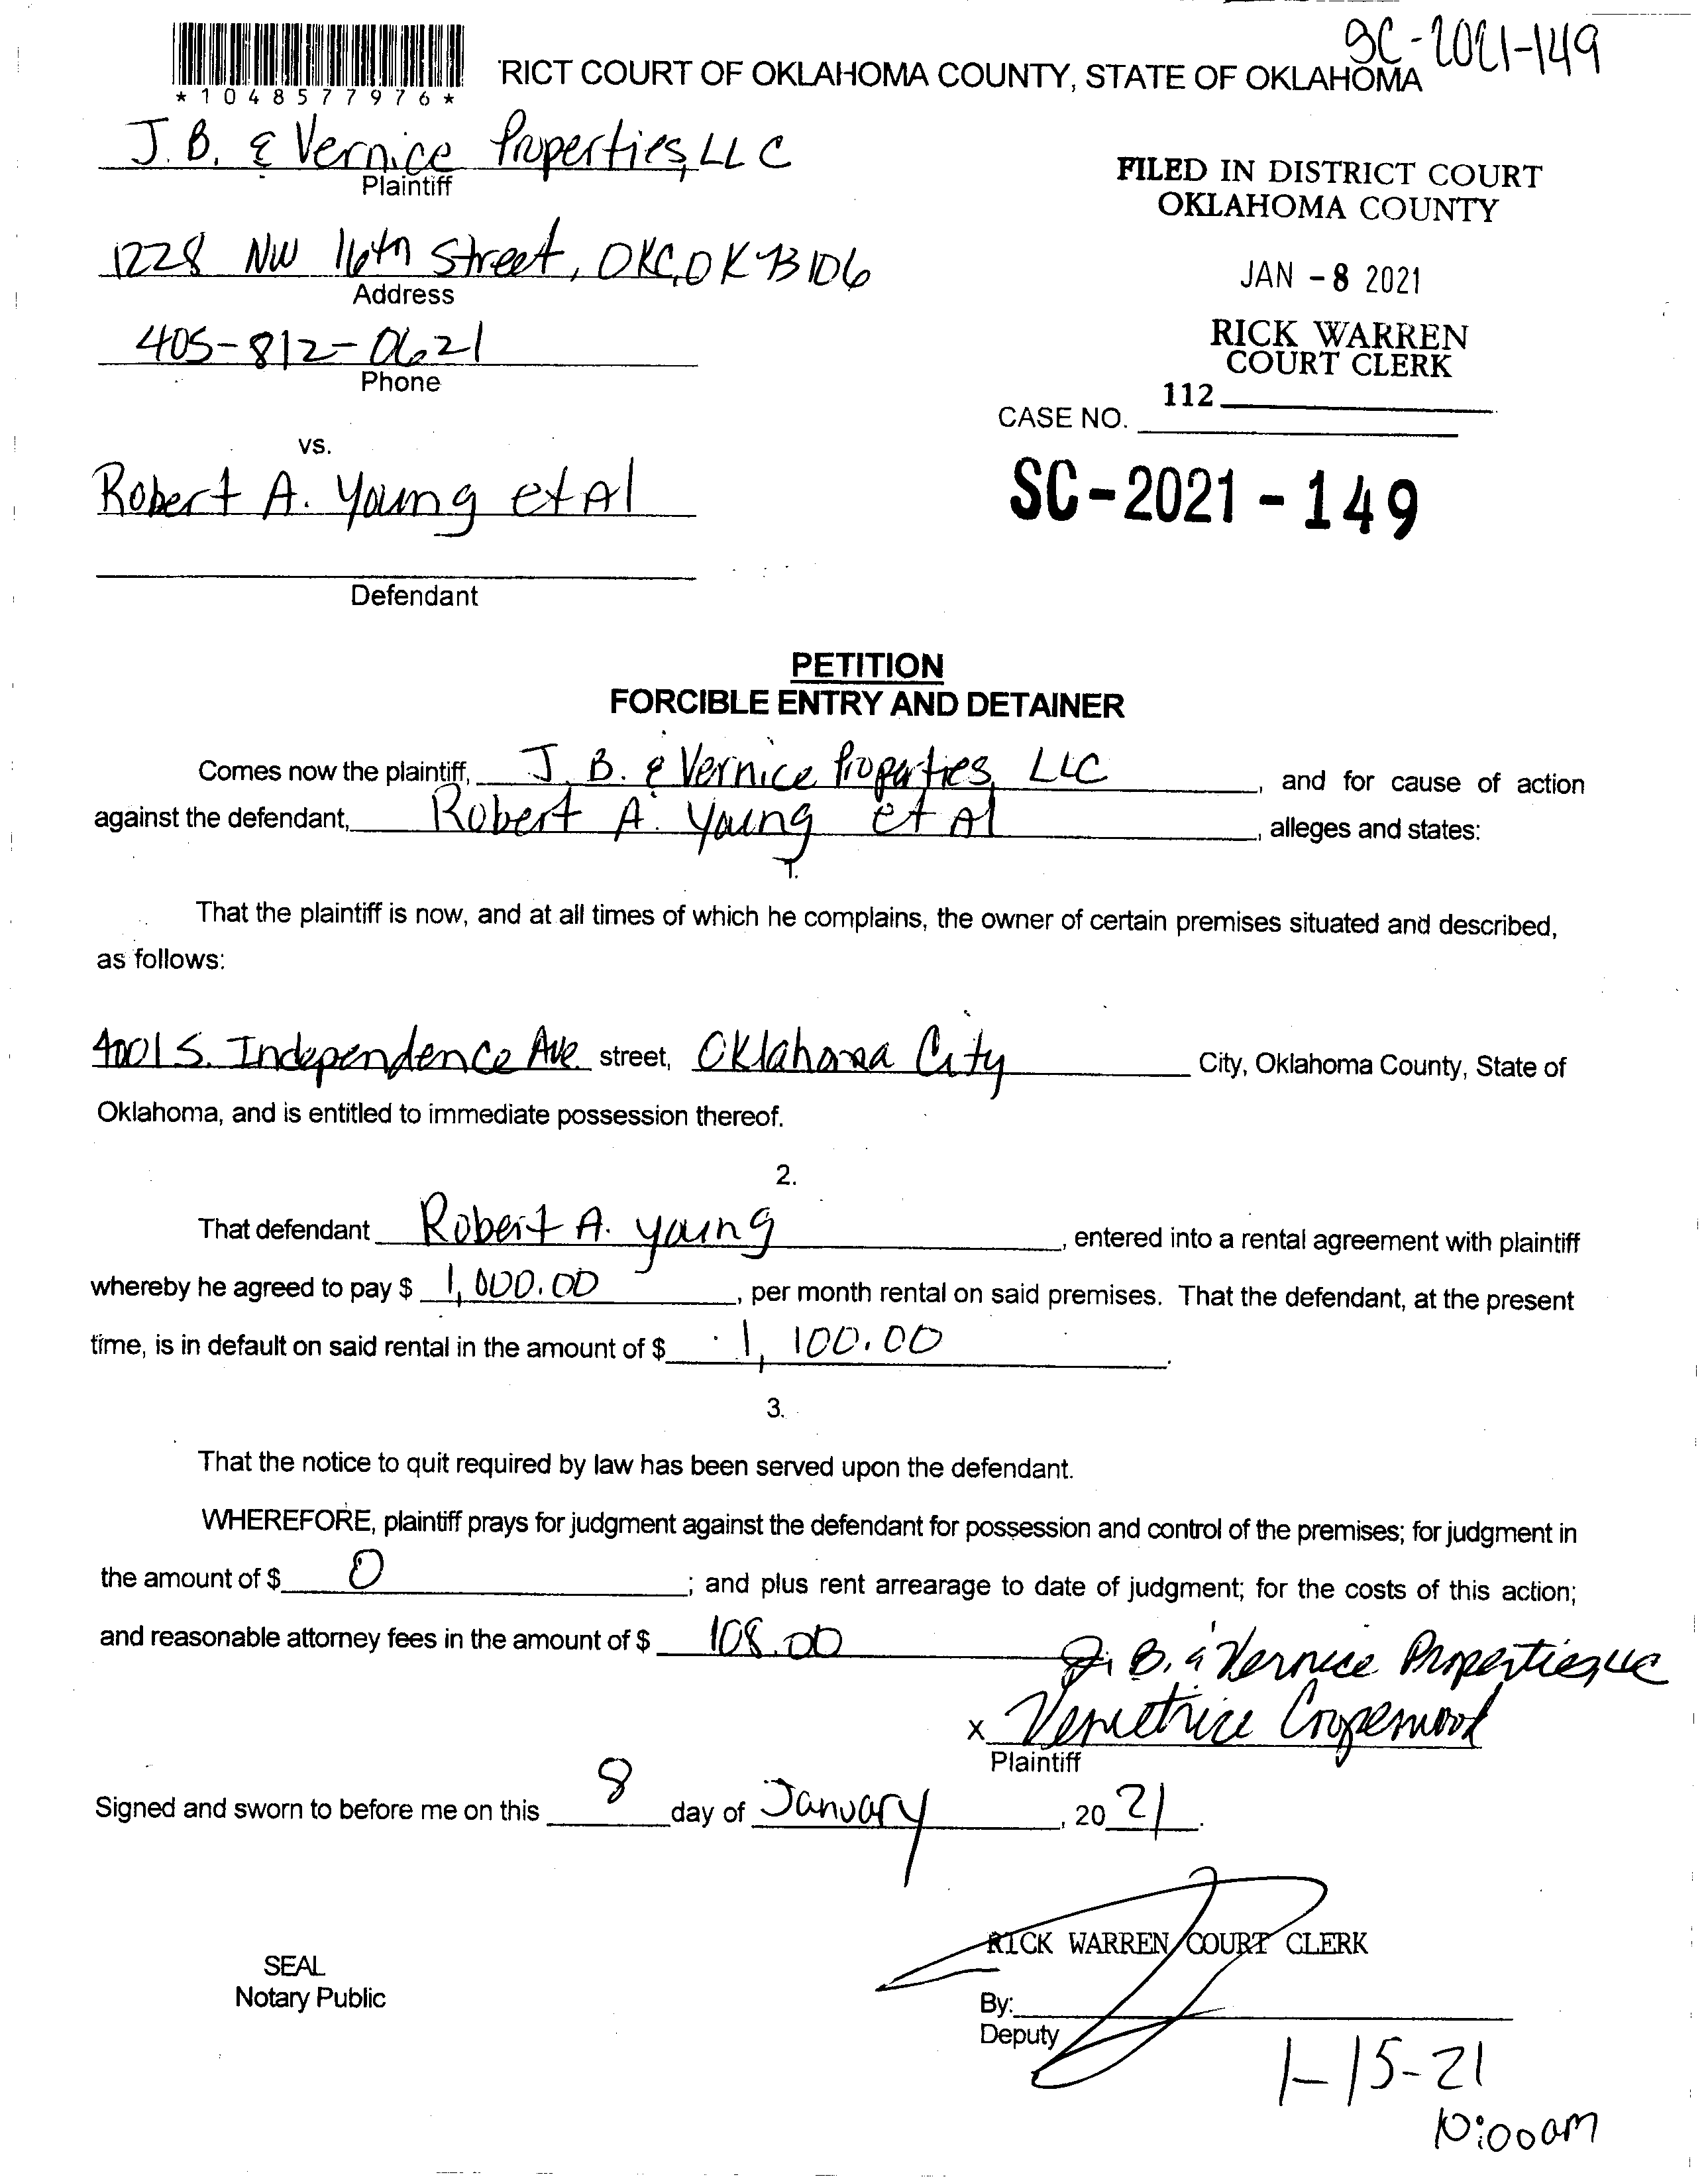 SC-2021-149
*1048577976*
'RICT COURT OF OKLAHOMA COUNTY, STATE OF OKLAHOMA
J. B. & Vernice Properties, LLC
Plaintiff
FILED IN DISTRICT COURT
OKLAHOMA COUNTY
1228 NW 16th Street, OKC, OK 73106
Address
JAN -8 2021
405-812-0621
Phone
RICK WARREN
COURT CLERK
112
CASE NO.
vs.
Robert A. Young et Al
SC-2021-149
Defendant
PETITION
FORCIBLE ENTRY AND DETAINER
Comes now the plaintiff, J. B. & Vernice Properties, LLC, and for cause of action
against the defendant, Robert A. Young et Al, alleges and states:
1.
That the plaintiff is now, and at all times of which he complains, the owner of certain premises situated and described,
as follows:
4001 S. Independence Ave. street, Oklahoma City City, Oklahoma County, State of
Oklahoma, and is entitled to immediate possession thereof.
2.
That defendant Robert A. Young, entered into a rental agreement with plaintiff
whereby he agreed to pay $ 1,000.00, per month rental on said premises. That the defendant, at the present
time, is in default on said rental in the amount of $ 1,100.00.
3.
That the notice to quit required by law has been served upon the defendant.
WHEREFORE, plaintiff prays for judgment against the defendant for possession and control of the premises; for judgment in
the amount of $ 0; and plus rent arrearage to date of judgment; for the costs of this action;
and reasonable attorney fees in the amount of $ 108.00
J. B. & Vernice Properties, LLC
X Venetrice Coopenwood
Plaintiff
Signed and sworn to before me on this 8 day of January, 2021.
RICK WARREN COURT CLERK
SEAL
Notary Public
By:
Deputy
1-15-21
10:00am